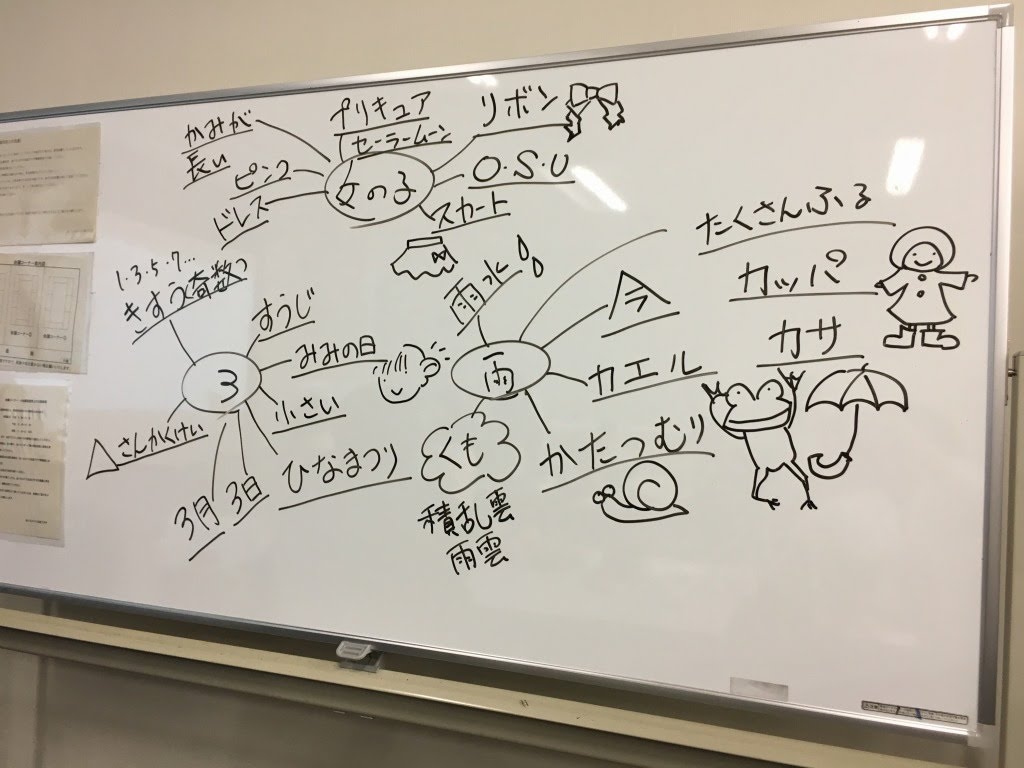 かみが
長い
ピンク
ドレス
プリキュア
セーラームーン
リボン
O・S・U
スカート
女の子
1・3・5・7...
きすう(奇数)
すうじ
みみの日
小さい
ひなまつり
3日
3月
さんかくけい
3
雨水
たくさんふる
今
カエル
かたつむり
くも
積乱雲
雨雲
雨
カッパ
カサ